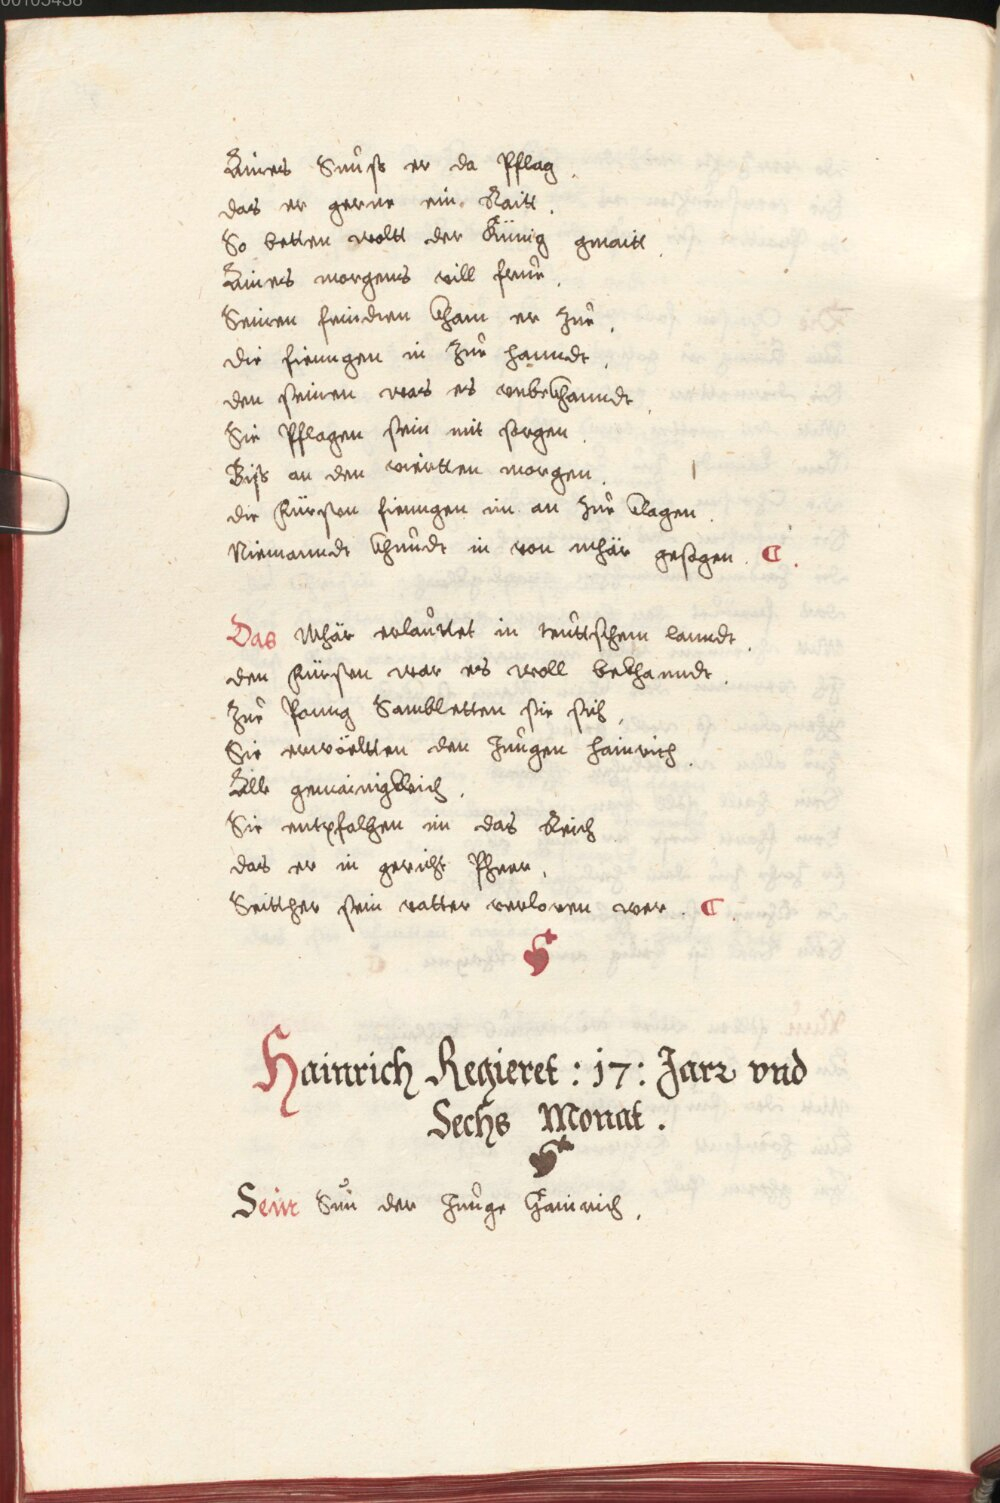 00103438
Aines Sun̂ß er da Pflag
das er gerne ein Raitt.
So betten wolt der Künig gmaitt
Aines morgens vill frue.
Seinen feindten kham er Zue.
die fiengen in Zue hanndt.
den seinen was es vnbekhanndt
Sie Pflagen sein mit sorgen
Biß an den viertten morgen.
die Fürsten fiengen in an Zue klagen.
Niemanndt khundt in von mhär gesagen.
Das Mhär erlauttet in teuttschem lanndt.
den Fürsten war es woll bekhanndt.
Zue Sambletten sie sich.
Sie erwöltten den Jungen hainrich.
Alle gemainigkleich.
Sie entpfalhen im das Reich
das er in gericht
Seitther sein vatter verloren wer.
Hainrich Regieret : 17 : Jarr vnd
Sechs Monat.
Sein Sun der Junge Hainrich.